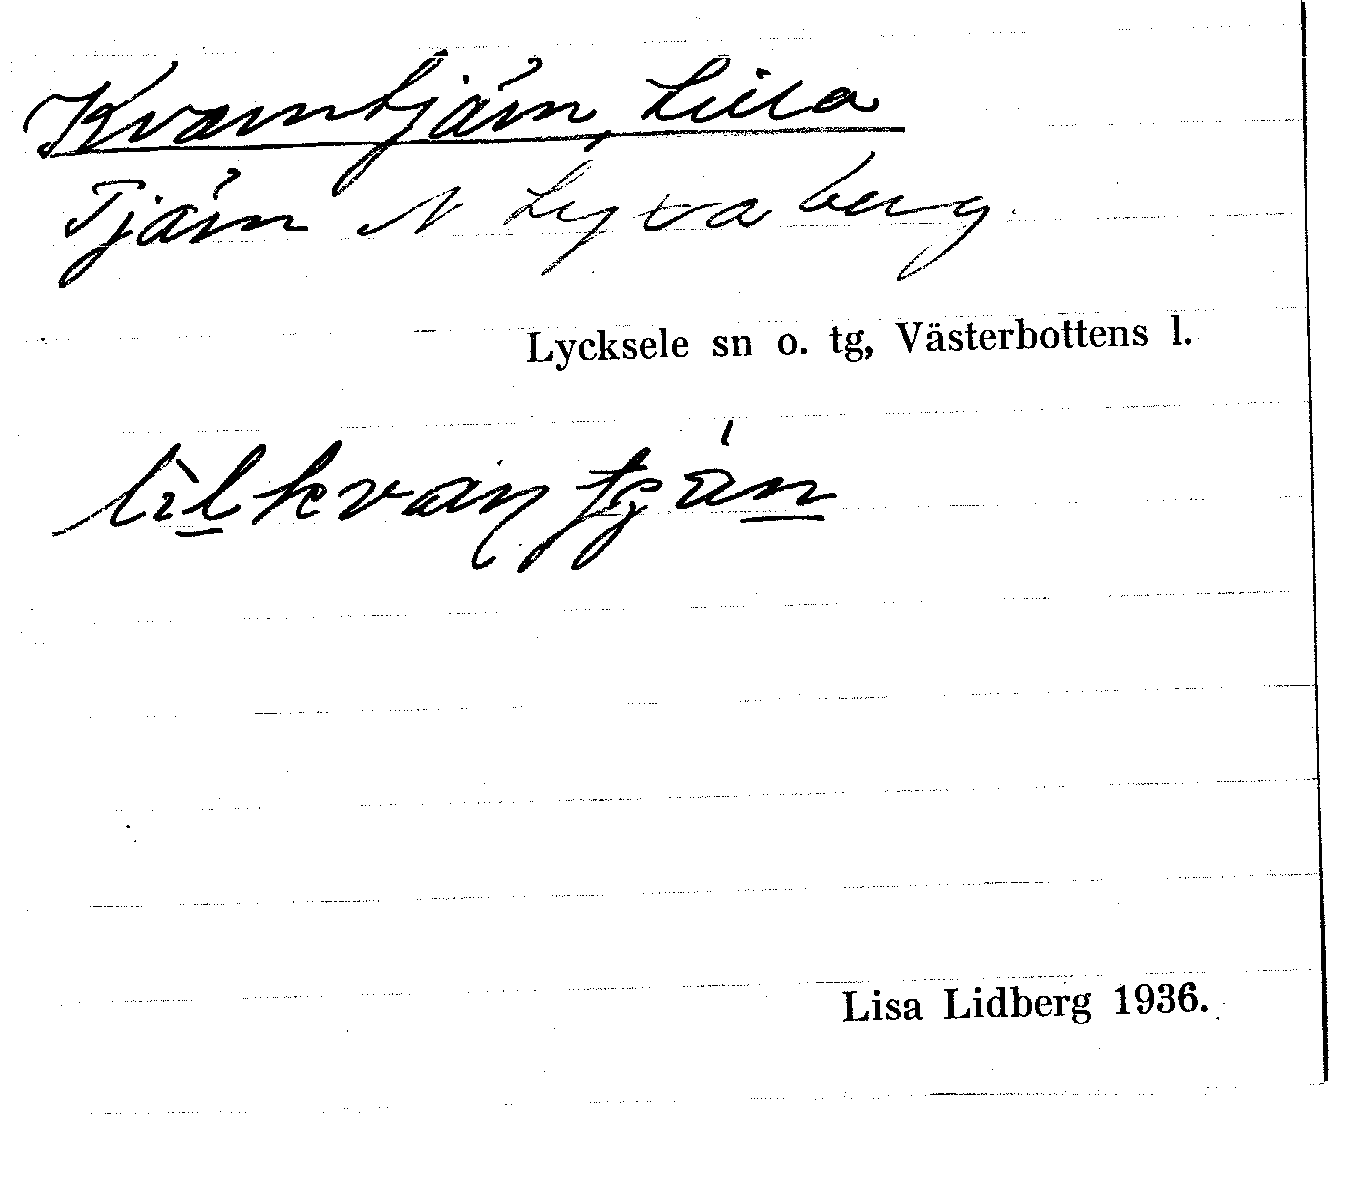 Kvarntjärn, Lilla
Tjärn N Lyvaberg.
Lycksele sn o. tg, Västerbottens l.
Lisa Lidberg 1936.